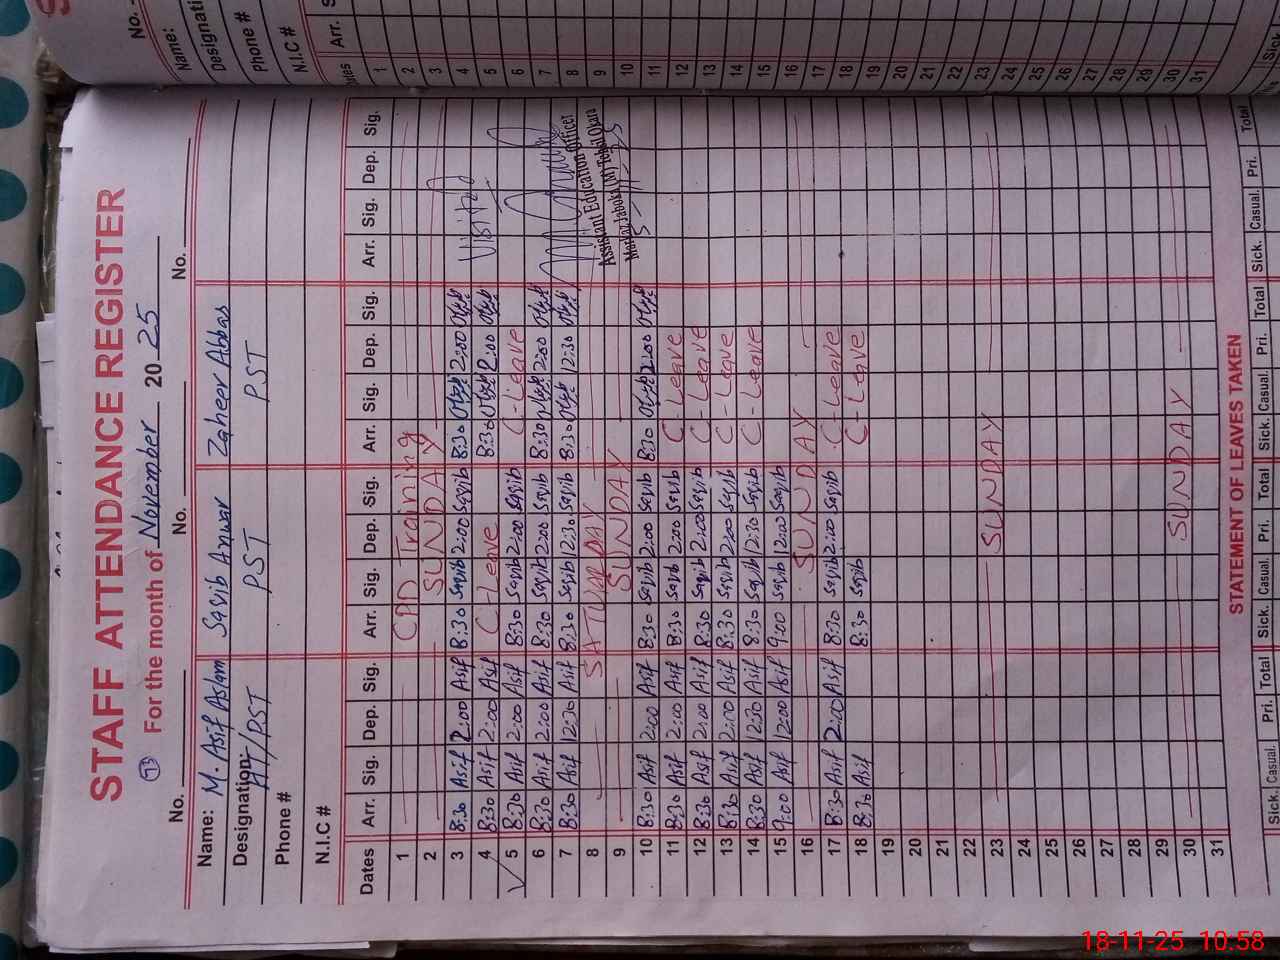 STAFF ATTENDANCE REGISTER
73 For the month of November 20 25
No. No. No.
Name: M. Asif Aslam Saqib Anwar Zaheer Abbas
Designation: HT/PST PST PST
Phone #
N.I.C #
Dates Arr. Sig. Dep. Sig. Arr. Sig. Dep. Sig. Arr. Sig. Dep. Sig. Arr. Sig. Dep. Sig.
1 CPD Training
2 SUNDAY
3 8:30 Asif 2:00 Asif 8:30 Saqib 2:00 Saqib 8:30 2:00
4 8:30 Asif 2:00 Asif C-Leave 8:30 2:00 Visited
5 8:30 Asif 2:00 Asif 8:30 Saqib 2:00 Saqib C-Leave
6 8:30 Asif 2:00 Asif 8:30 Saqib 2:00 Saqib 8:30 2:00
7 8:30 Asif 12:30 Asif 8:30 Saqib 12:30 Saqib 8:30 12:30
8 SATURDAY Assistant Education Officer
9 SUNDAY Markaz Jaboka (M) Tehsil Okara
10 8:30 Asif 2:00 Asif 8:30 Saqib 2:00 Saqib 8:30 2:00
11 8:30 Asif 2:00 Asif 8:30 Saqib 2:00 Saqib C-Leave
12 8:30 Asif 2:00 Asif 8:30 Saqib 2:00 Saqib C-Leave
13 8:30 Asif 2:00 Asif 8:30 Saqib 2:00 Saqib C-Leave
14 8:30 Asif 12:30 Asif 8:30 Saqib 12:30 Saqib C-Leave
15 9:00 Asif 12:00 Asif 9:00 Saqib 12:00 Saqib
16 SUNDAY
17 8:30 Asif 2:00 Asif 8:30 Saqib 2:00 Saqib C-Leave
18 8:30 Asif 8:30 Saqib C-Leave
19
20
21
22
23 SUNDAY
24
25
26
27
28
29
30 SUNDAY
31
STATEMENT OF LEAVES TAKEN
Sick. Casual. Pri. Total Sick. Casual. Pri. Total Sick. Casual. Pri. Total Sick. Casual. Pri. Total
No.
Name:
Designati
Phone #
N.I.C #
Arr.
1
2
3
4
5
6
7
8
9
10
11
12
13
14
15
16
17
18
19
20
21
22
23
24
25
26
27
28
29
30
31
Sick.
18-11-25 10:58